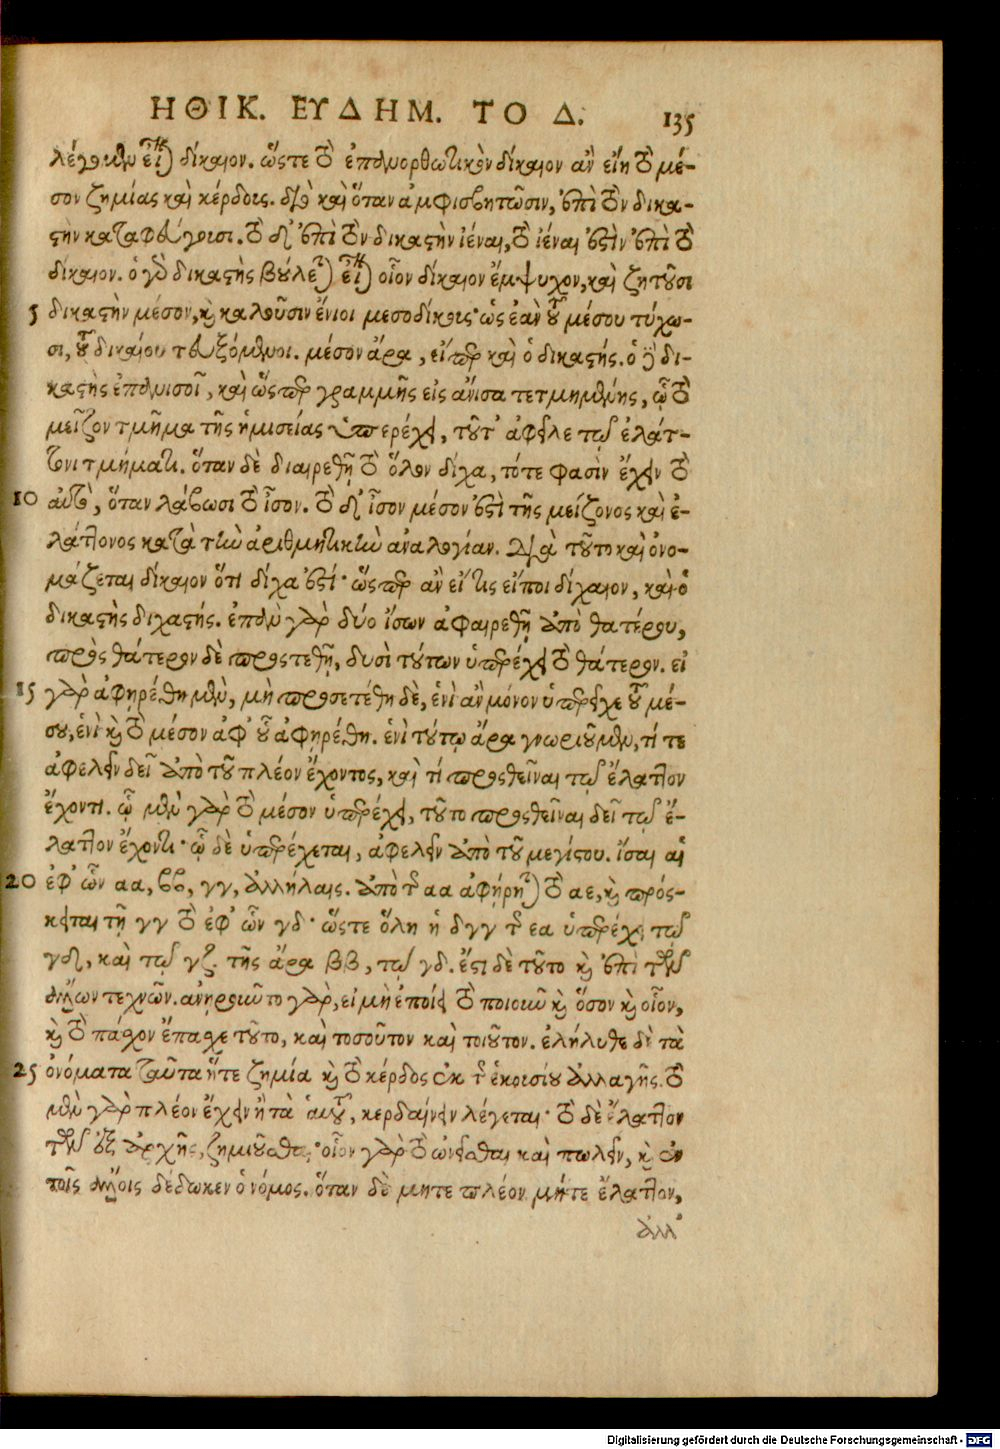 ΗΘΙΚ. ΕΥΔΗΜ. ΤΟ Δ. 135
λέγομεν εἶναι δίκαιον. ὥστε τὸ ἐπανορθωτικὸν δίκαιον ἂν εἴη τὸ μέ-
σον ζημίας καὶ κέρδους. διὸ καὶ ὅταν ἀμφισβητῶσιν, ἐπὶ τὸν δικα-
στὴν καταφεύγουσι. τὸ δ' ἐπὶ τὸν δικαστὴν ἰέναι, τὸ ἰέναι ἐστὶν ἐπὶ τὸ
δίκαιον. ὁ γὰρ δικαστὴς βούλεται εἶναι οἷον δίκαιον ἔμψυχον, καὶ ζητοῦσι
5 δικαστὴν μέσον, καὶ καλοῦσιν ἔνιοι μεσοδίκους· ὡς ἐὰν τοῦ μέσου τύχω-
σι, τοῦ δικαίου τευξόμενοι. μέσον ἄρα, εἴπερ καὶ ὁ δικαστής. ὁ δὲ δι-
καστὴς ἐπανισοῖ, καὶ ὥσπερ γραμμῆς εἰς ἄνισα τετμημένης, ᾧ τὸ
μεῖζον τμῆμα τῆς ἡμισείας ὑπερέχει, τοῦτ' ἀφεῖλε τῷ ἐλάτ-
τονι τμήματι. ὅταν δὲ διαιρεθῇ τὸ ὅλον δίχα, τότε φασὶν ἔχειν τὸ
10 αὐτὸ, ὅταν λάβωσι τὸ ἴσον. τὸ δ' ἴσον μέσον ἐστὶ τῆς μείζονος καὶ ἐ-
λάττονος κατὰ τὴν ἀριθμητικὴν ἀναλογίαν. διὰ τοῦτο καὶ ὀνο-
μάζεται δίκαιον ὅτι δίχα ἐστί· ὥσπερ ἂν εἴ τις εἴποι δίχαιον, καὶ ὁ
δικαστὴς διχαστής. ἐπὰν γὰρ δύο ἴσων ἀφαιρεθῇ ἀπὸ θατέρου,
πρὸς θάτερον δὲ προστεθῇ, δυσὶ τούτων ὑπερέχει τὸ θάτερον. εἰ
15 γὰρ ἀφῃρέθη μὲν, μὴ προσετέθη δὲ, ἑνὶ ἂν μόνον ὑπερεῖχε τοῦ μέ-
σου, ἑνὶ καὶ τὸ μέσον ἀφ' οὗ ἀφῃρέθη. ἑνὶ τούτῳ ἄρα γνωριοῦμεν, τί τε
ἀφελεῖν δεῖ ἀπὸ τοῦ πλέον ἔχοντος, καὶ τί προσθεῖναι τῷ ἔλαττον
ἔχοντι. ᾧ μὲν γὰρ τὸ μέσον ὑπερέχει, τοῦτο προσθεῖναι δεῖ τῷ ἔ-
λαττον ἔχοντι· ᾧ δὲ ὑπερέχεται, ἀφελεῖν ἀπὸ τοῦ μεγίστου. ἴσαι αἱ
20 ἐφ' ὧν αα, ββ, γγ, ἀλλήλαις. ἀπὸ τῆς αα ἀφῄρηται τὸ αε, καὶ πρός-
κειται τῇ γγ τὸ ἐφ' ὧν γδ· ὥστε ὅλη ἡ δγγ τῆς εα ὑπερέχει τῷ
γδ, καὶ τῷ γζ. τῆς ἄρα ββ, τῷ γδ. ἔστι δὲ τοῦτο καὶ ἐπὶ τῶν
ἄλλων τεχνῶν. ἀνῃροῦντο γὰρ, εἰ μὴ ἐποίει τὸ ποιοῦν καὶ ὅσον καὶ οἷον,
καὶ τὸ πάσχον ἔπασχε τοῦτο, καὶ τοσοῦτον καὶ τοιοῦτον. ἐλήλυθε δὲ τὰ
25 ὀνόματα ταῦτα ἥτε ζημία καὶ τὸ κέρδος ἐκ τῆς ἑκουσίου ἀλλαγῆς. τὸ
μὲν γὰρ πλέον ἔχειν ἢ τὰ αὑτοῦ, κερδαίνειν λέγεται· τὸ δὲ ἔλαττον
τῶν ἐξ ἀρχῆς, ζημιοῦσθαι· οἷον γὰρ τὸ ὠνεῖσθαι καὶ πωλεῖν, καὶ ἐν
τοῖς ἄλλοις δέδωκεν ὁ νόμος. ὅταν δὲ μήτε πλέον μήτε ἔλαττον,
ἀλλ'
Digitalisierung gefördert durch die Deutsche Forschungsgemeinschaft - DFG